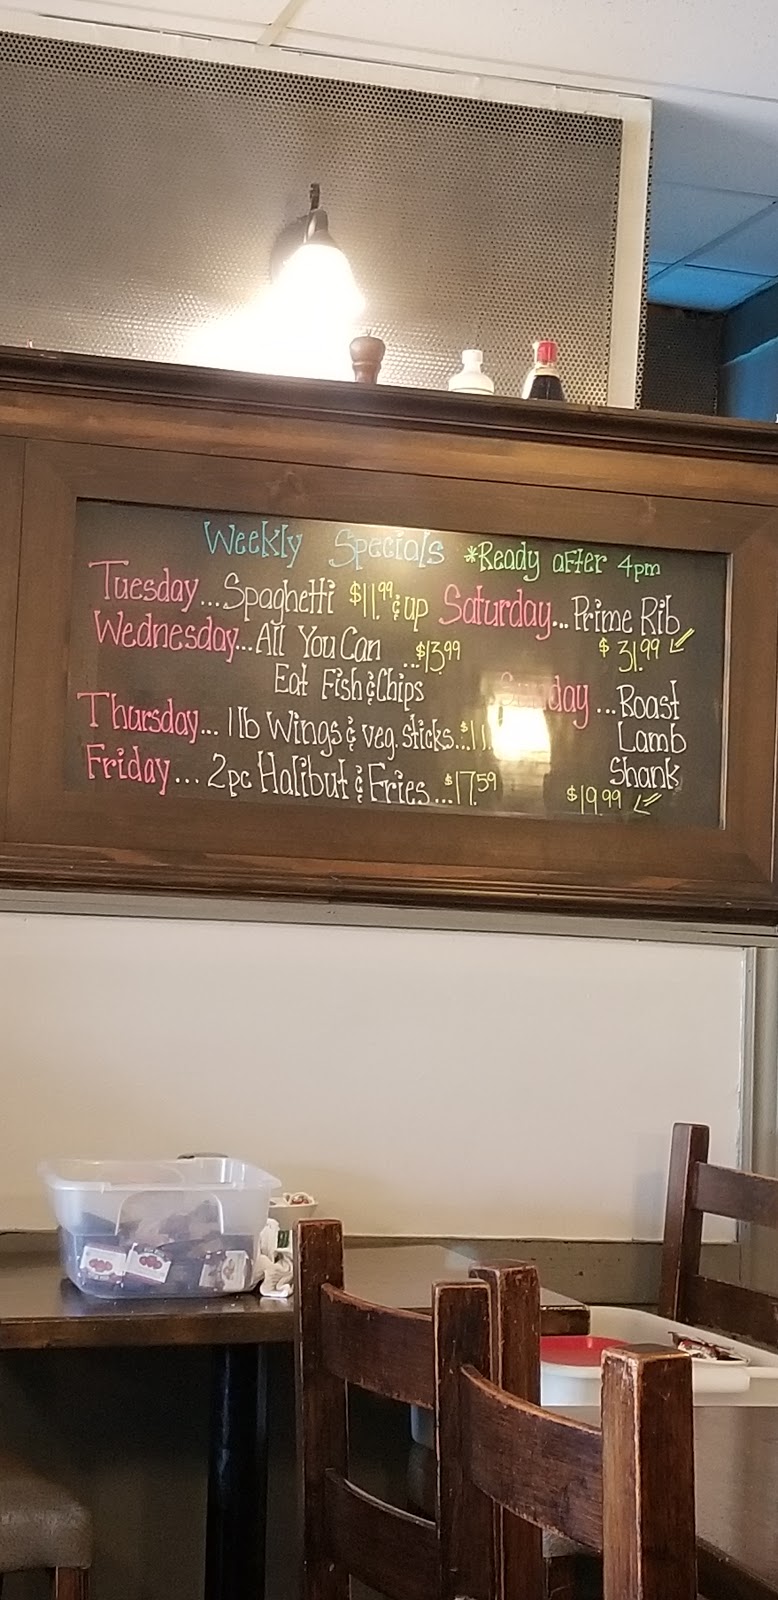 Weekly Specials *Ready after 4pm
Tuesday...Spaghetti $11.99 & up
Wednesday...All You Can
Eat Fish & Chips ...$13.99
Thursday...1lb Wings & veg. sticks...$11.
Friday...2pc Halibut & Fries...$17.59
Saturday...Prime Rib
$31.99
Sunday...Roast
Lamb
Shank
$19.99